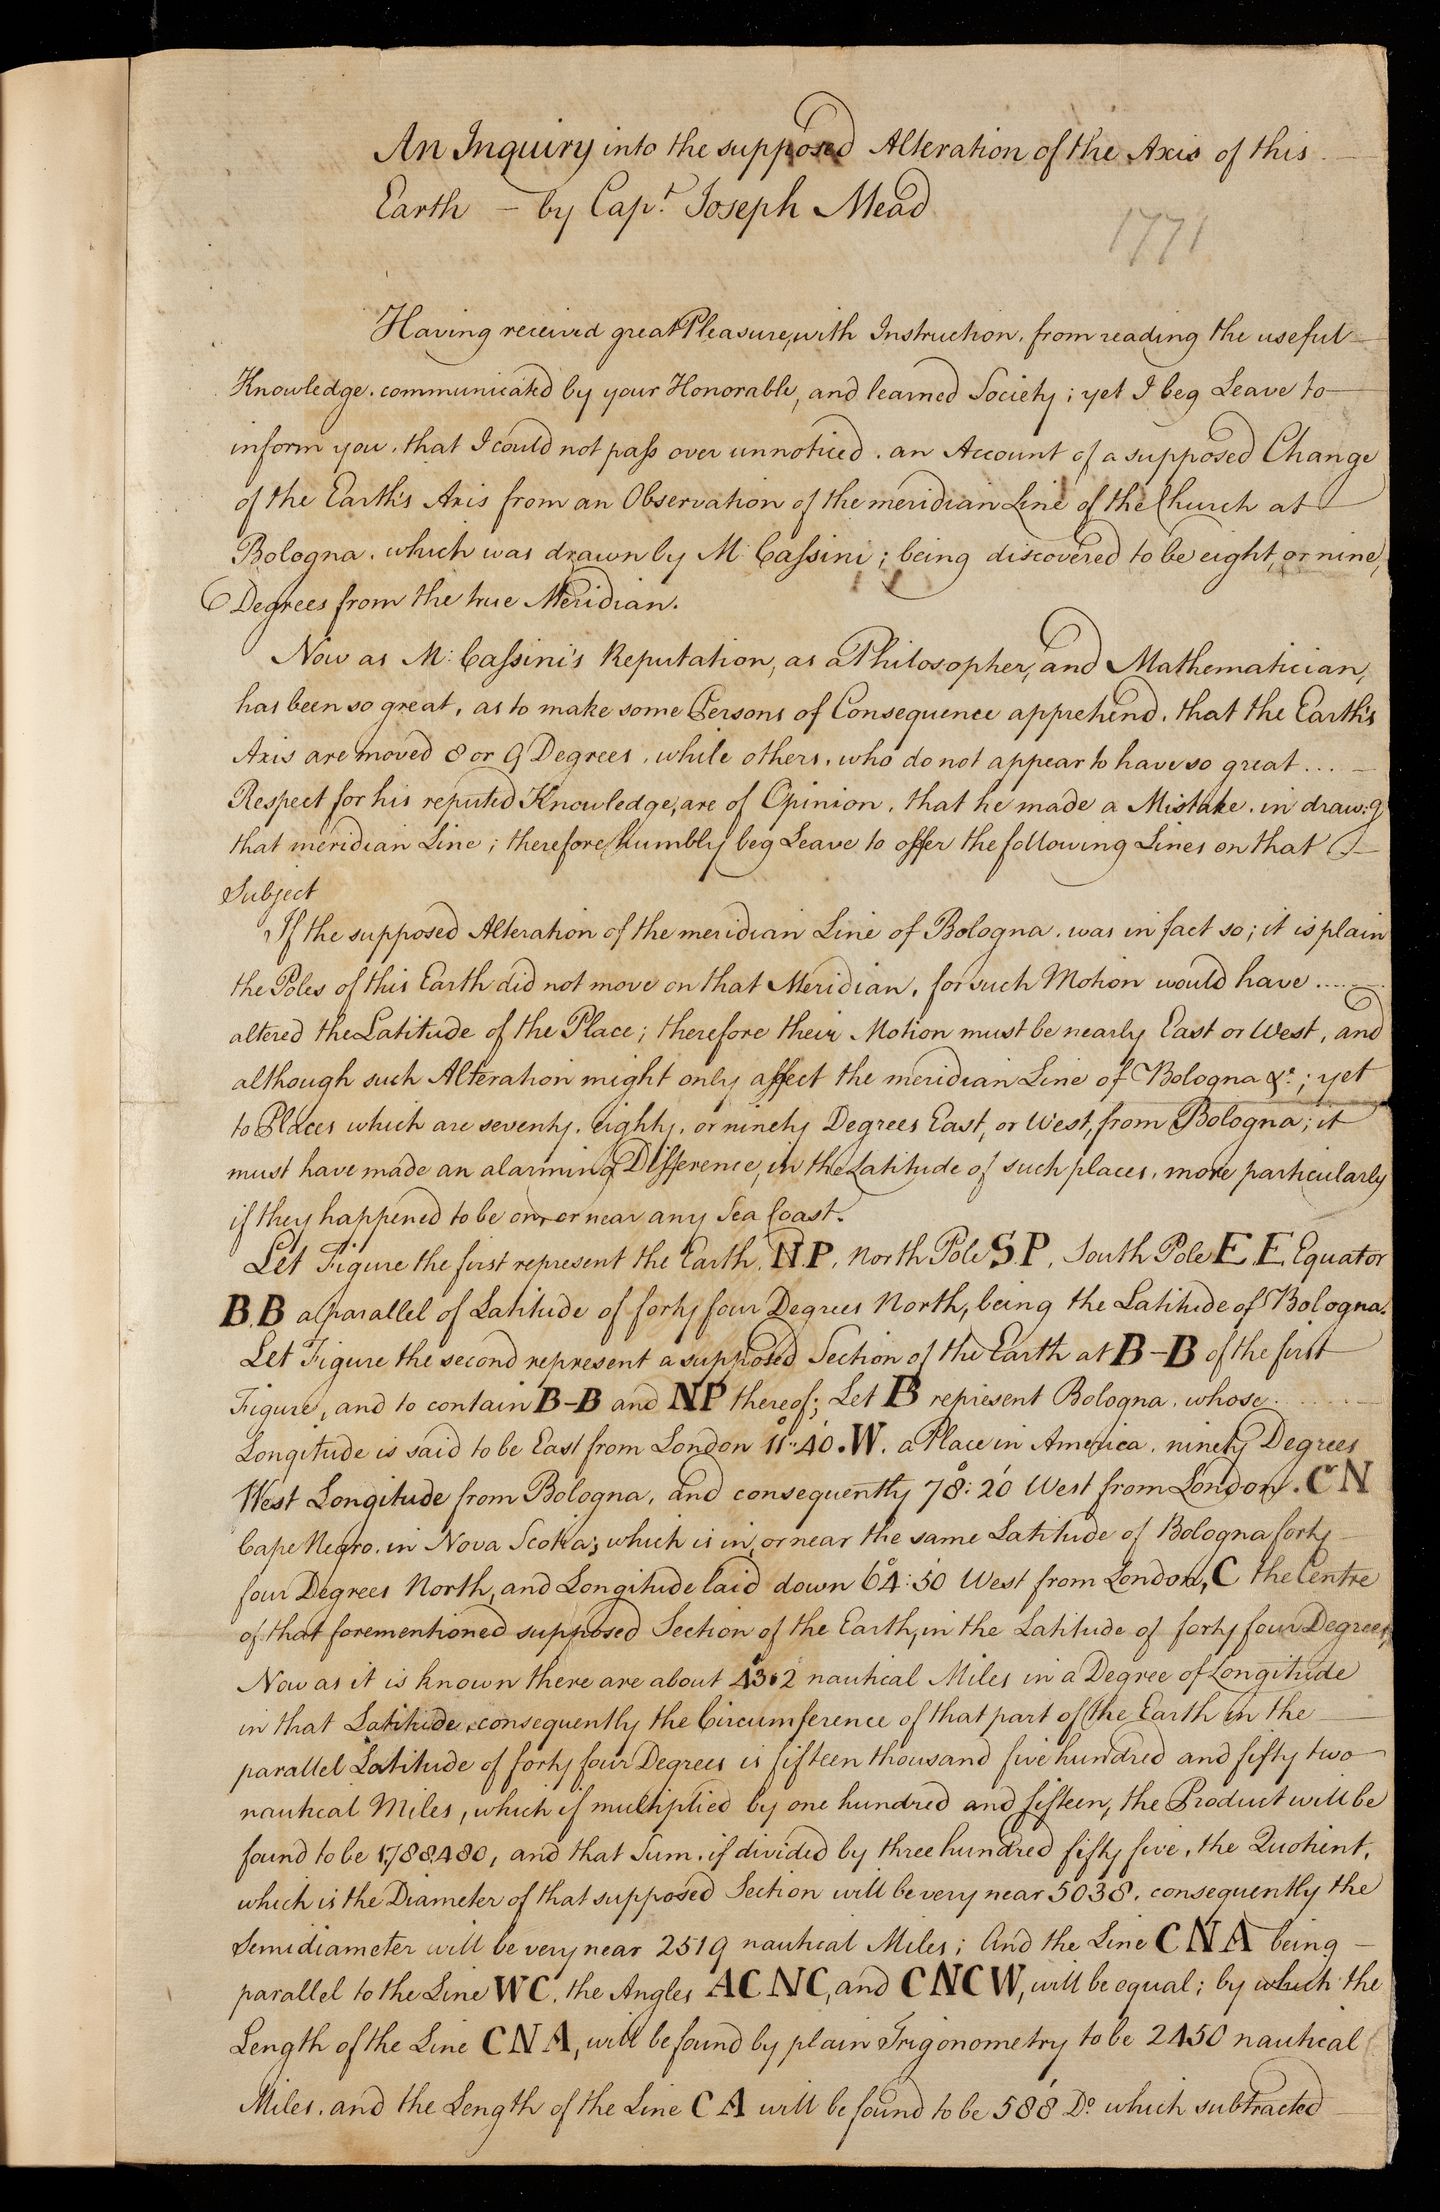 An Inquiry into the supposed Alteration of the Axis of this
Earth – by Capt. Joseph Mead
1771
Having received great Pleasure, with Instruction, from reading the useful
Knowledge, communicated by your Honorable, and learned Society; yet I beg Leave to
inform you, that I could not paſs over unnoticed, an Account of a supposed Change
of the Earth's Axis from an Observation of the meridian Line of the Church at
Bologna, which was drawn by M. Caſsini; being discovered to be eight, or nine,
Degrees from the true Meridian.
Now as M: Caſsini's Reputation, as a Philosopher, and Mathematician,
has been so great, as to make some Persons of Consequence apprehend, that the Earth's
Axis are moved 8 or 9 Degrees, while others, who do not appear to have so great ...
Respect for his reputed Knowledge, are of Opinion, that he made a Mistake, in draw:g
that meridian Line; therefore humbly beg Leave to offer the following Lines on that
Subject
If the supposed Alteration of the meridian Line of Bologna, was in fact so; it is plain
the Poles of this Earth did not move on that Meridian, for such Motion would have ......
altered the Latitude of the Place; therefore their Motion must be nearly East or West, and
although such Alteration might only affect the meridian Line of Bologna &c.; yet
to Places which are seventy, eighty, or ninety Degrees East, or West, from Bologna; it
must have made an alarming Difference, in the Latitude of such places, more particularly
if they happened to be on, or near any Sea Coast.
Let Figure the first represent the Earth, N.P, North Pole S.P, South Pole E.E. Equator
B.B a parallel of Latitude of forty four Degrees North, being the Latitude of Bologna.
Let Figure the second represent a supposed Section of the Earth at B–B of the first
Figure, and to contain B–B and NP thereof; Let B represent Bologna, whose ......
Longitude is said to be East from London 11°:40'. W. a Place in America, ninety Degrees
West Longitude from Bologna, and consequently 78°:20' West from London. CN
Cape Negro, in Nova Scotia; which is in, or near the same Latitude of Bologna forty
four Degrees North, and Longitude laid down 64°:50' West from London, C the Centre
of that forementioned supposed Section of the Earth, in the Latitude of forty four Degrees,
Now as it is known there are about 43.2 nautical Miles in a Degree of Longitude
in that Latitude, consequently the Circumference of that part of the Earth in the
parallel Latitude of forty four Degrees is fifteen thousand five hundred and fifty two
nautical Miles, which if multiplied by one hundred and fifteen, the Product will be
found to be 1,788,480, and that Sum, if divided by three hundred fifty five, the Quotient,
which is the Diameter of that supposed Section will be very near 5038, consequently the
Semidiameter will be very near 2519 nautical Miles; And the Line CNA being –
parallel to the Line WC, the Angles ACNC, and CNCW, will be equal; by which the
Length of the Line CNA, will be found by plain Trigonometry to be 2450 nautical
Miles, and the Length of the Line CA will be found to be 588 Do. which subtracted